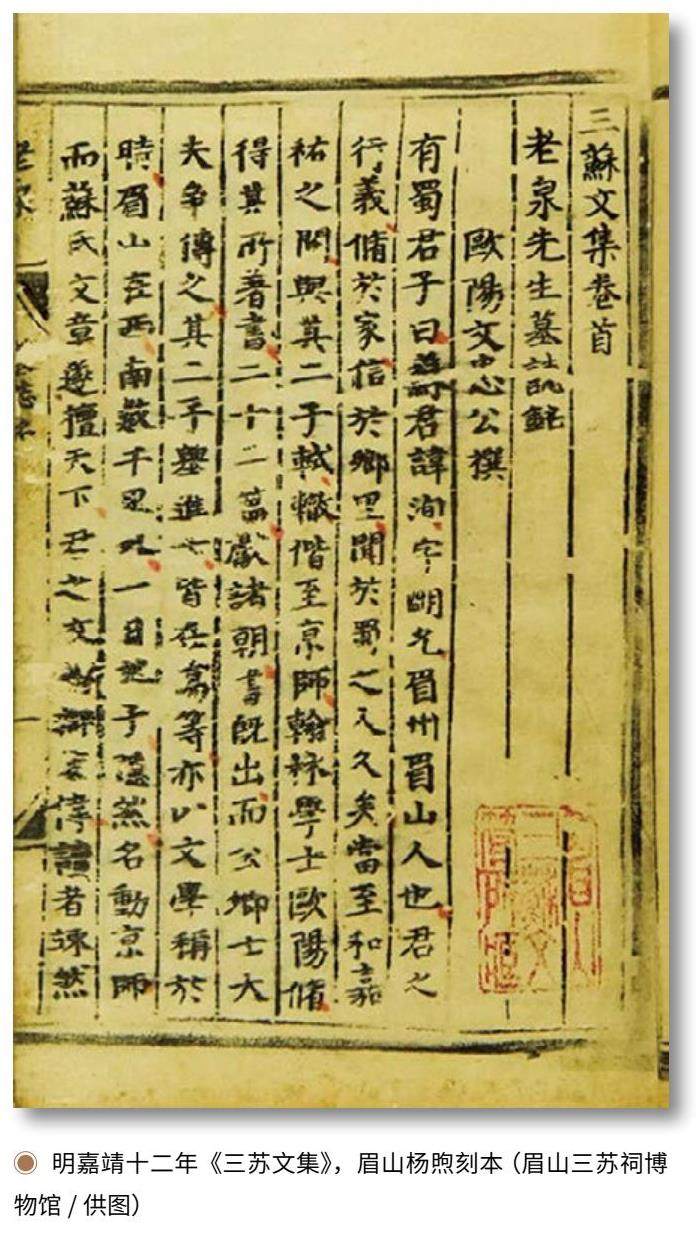 三蘇文集卷首
老泉先生墓誌銘
歐陽文忠公撰
有蜀君子曰蘇君諱洵字明允眉州眉山人也君之
行義脩於家信於鄉里聞於蜀之人久矣當至和嘉
祐之間與其二子軾轍偕至京師翰林學士歐陽脩
得其所著書二十二篇獻諸朝書既出而公卿士大
夫爭傳之其二子舉進士皆在高等亦以文學稱於
時眉山在西南數千里外一日父子隱然名動京師
而蘇氏文章遂擅天下君之文博辯宏偉讀者悚然
明嘉靖十二年《三苏文集》，眉山杨煦刻本（眉山三苏祠博
物馆 / 供图）